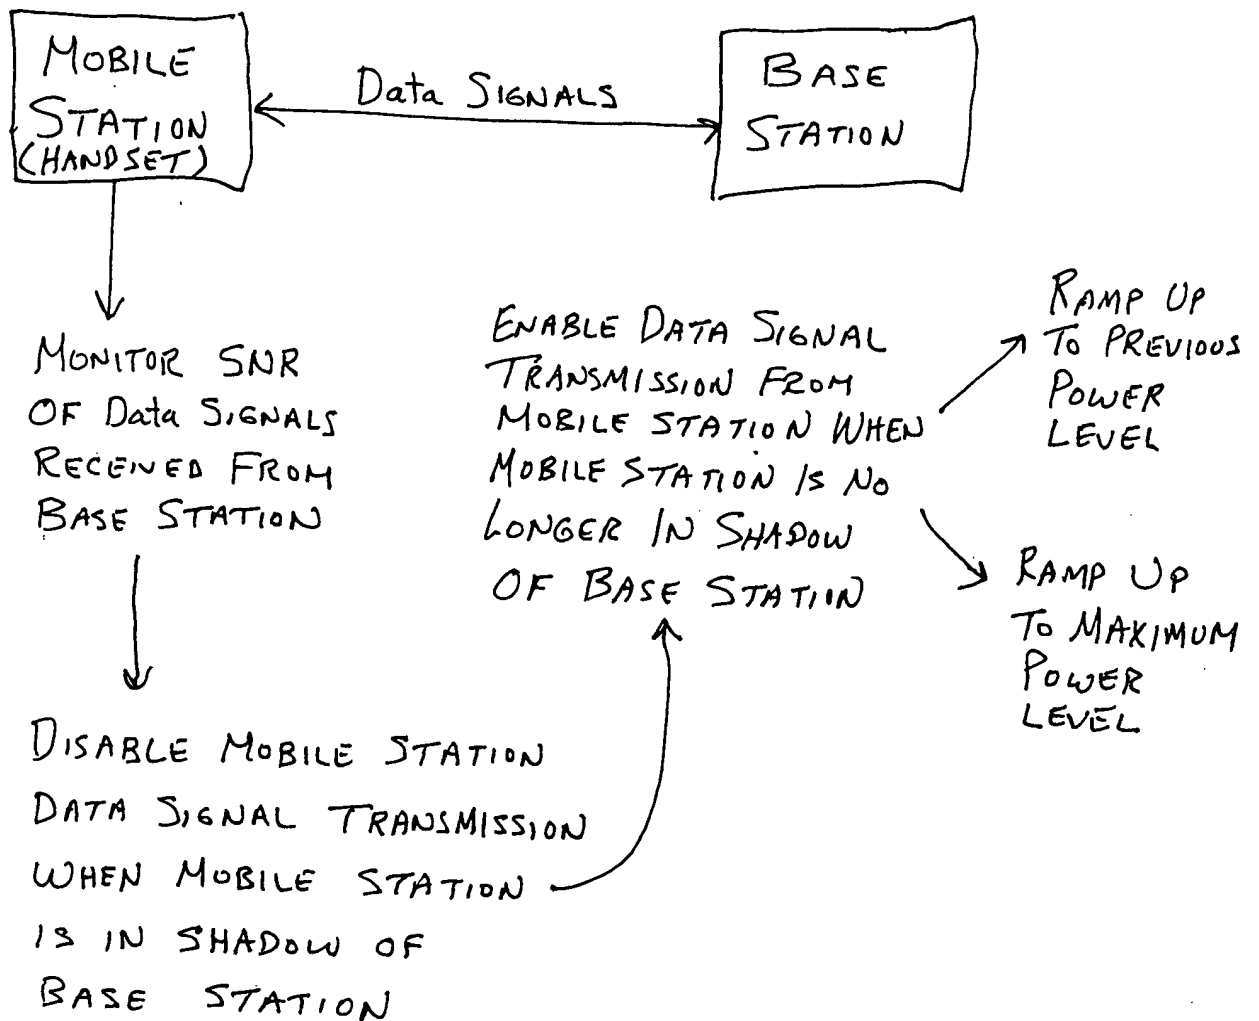 MOBILE
STATION
(HANDSET)
Data SIGNALS
BASE
STATION
MONITOR SNR
OF Data SIGNALS
RECEIVED FROM
BASE STATION
DISABLE MOBILE STATION
DATA SIGNAL TRANSMISSION
WHEN MOBILE STATION
IS IN SHADOW OF
BASE STATION
ENABLE DATA SIGNAL
TRANSMISSION FROM
MOBILE STATION WHEN
MOBILE STATION IS NO
LONGER IN SHADOW
OF BASE STATION
RAMP UP
TO PREVIOUS
POWER
LEVEL
RAMP UP
TO MAXIMUM
POWER
LEVEL